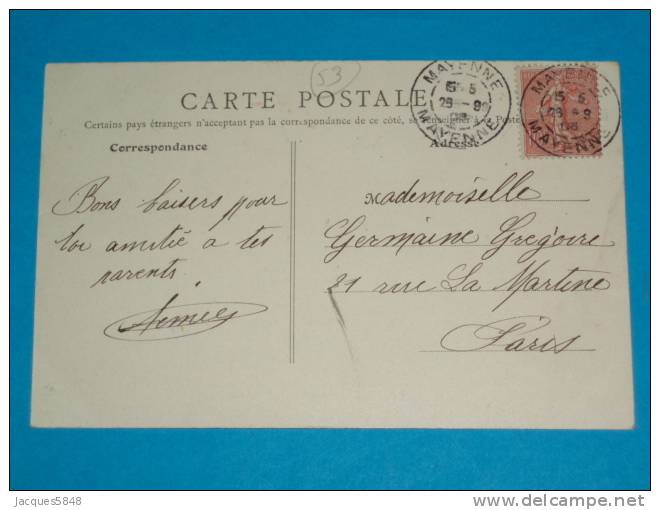 53
CARTE POSTALE
Certains pays étrangers n'acceptant pas la correspondance de ce côté, se renseigner à la Poste
Correspondance
Adresse
MAYENNE
MAYENNE
MAYENNE
MAYENNE
Bons baisers pour
toi amitié a tes
parents.
Mademoiselle
Germaine Gregoire
21 rue La Martine
Paris
Jacques5848
delcampe.net